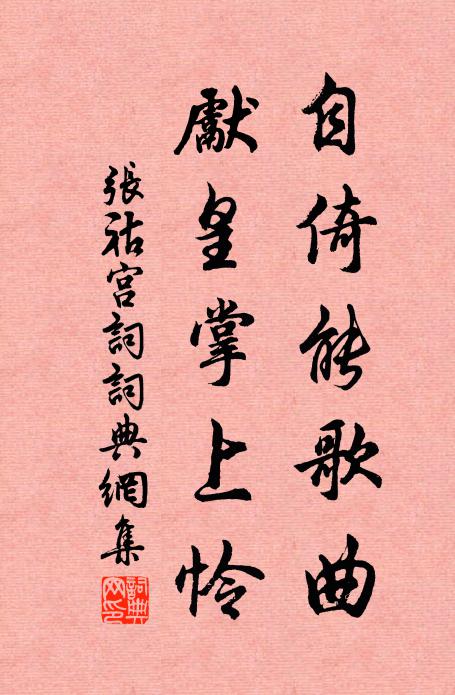 自倚能歌曲
獻皇掌上怜
張祜宮詞詞典網集
詞典网印